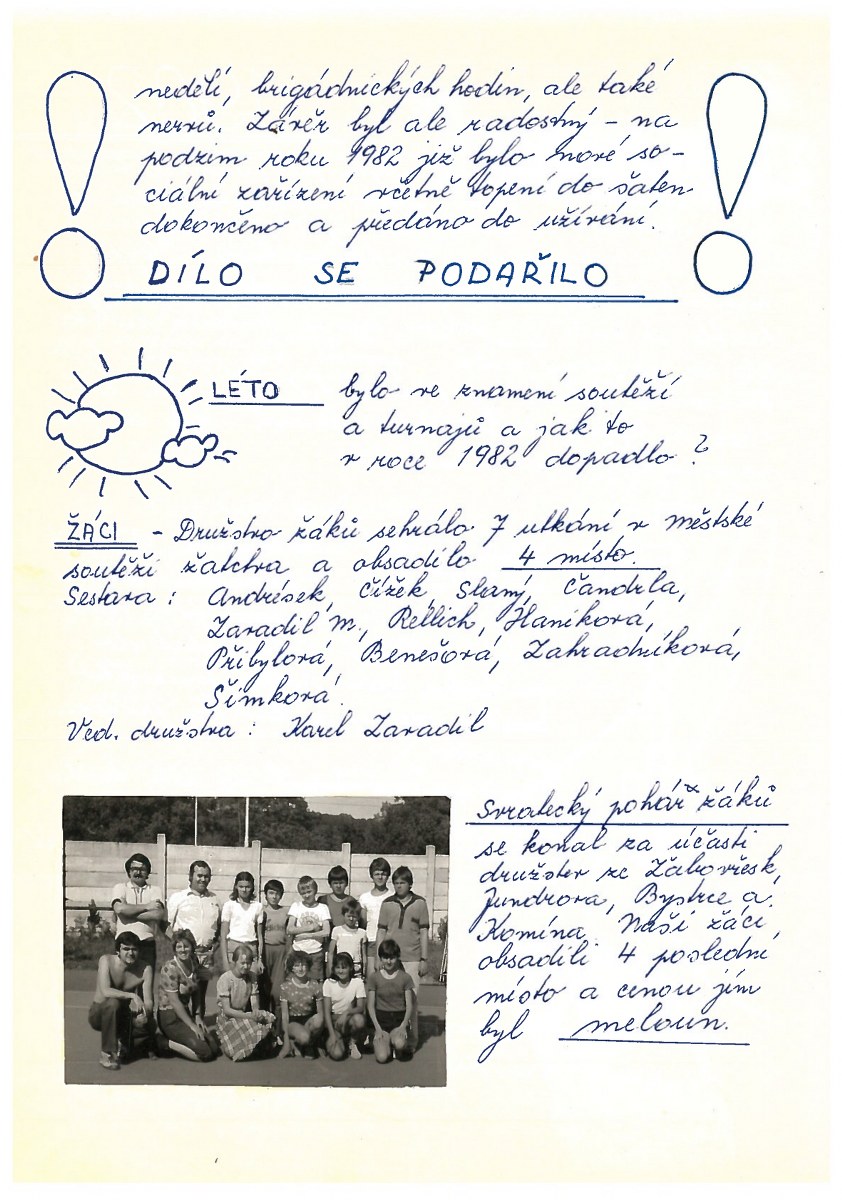 nedělí, brigádnických hodin, ale také
nervů. Závěr byl ale radostný - na
podzim roku 1982 již bylo nové so-
ciální zařízení včetně topení do šaten
dokončeno a předáno do užívání.
! DÍLO SE PODAŘILO !
LÉTO bylo ve znamení soutěží
a turnajů a jak to
v roce 1982 dopadlo?
ŽÁCI - Družstvo žáků sehrálo 7 utkání v městské
soutěži žactva a obsadilo 4 místo.
Sestava: Andrýsek, Čížek, Slaný, Čandrla,
Zavadil M., Rellich, Haníková,
Přibylová, Benešová, Zahradníková,
Šimková.
Ved. družstva: Karel Zavadil
Svratecký pohár žáků
se konal za účasti
družstev ze Žabovřesk,
Jundrova, Bystrce a
Komína. Naši žáci
obsadili 4 poslední
místo a cenou jim
byl meloun.